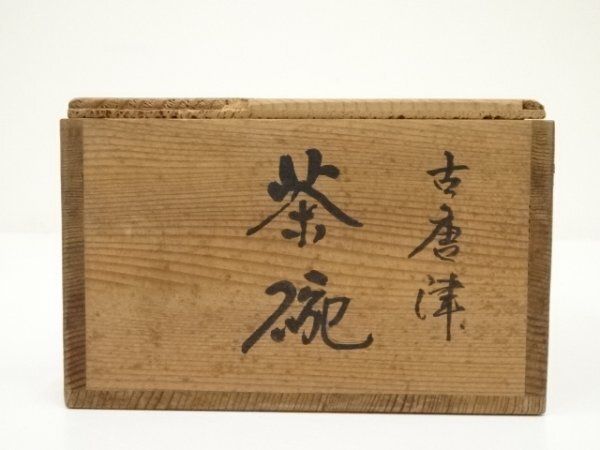 古唐津
茶碗